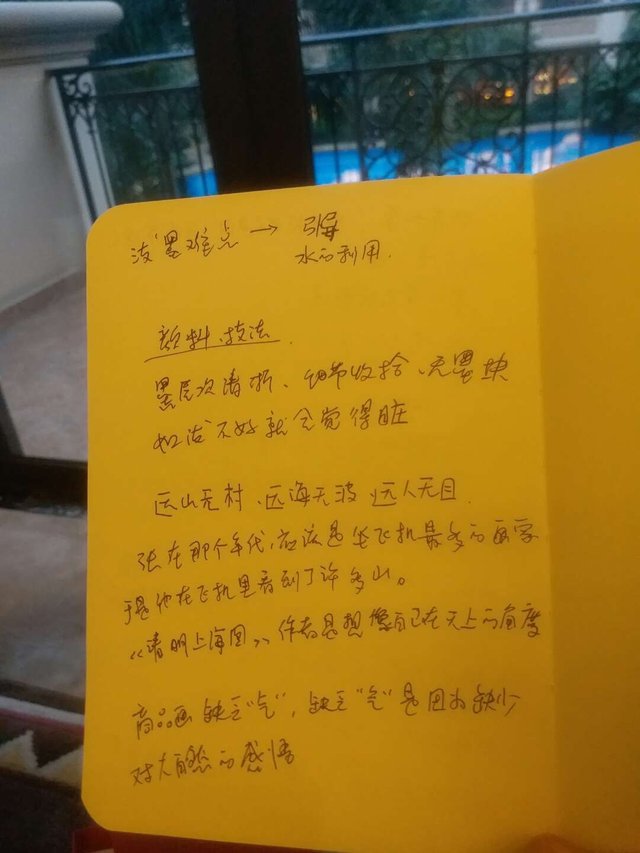 泼墨难点 →
水的利用.
颜料、技法.
墨层次清晰、细节收拾、无墨块
如泼不好就会觉得脏
远山无树、远海无波 远人无目.
张在那个年代,应该是坐飞机最多的画家
于是他在飞机里看到了许多山。
《清明上海图》作者是想像自己在天上的角度
商品画缺乏“气”,缺乏“气”是因为缺少
对大自然的感悟